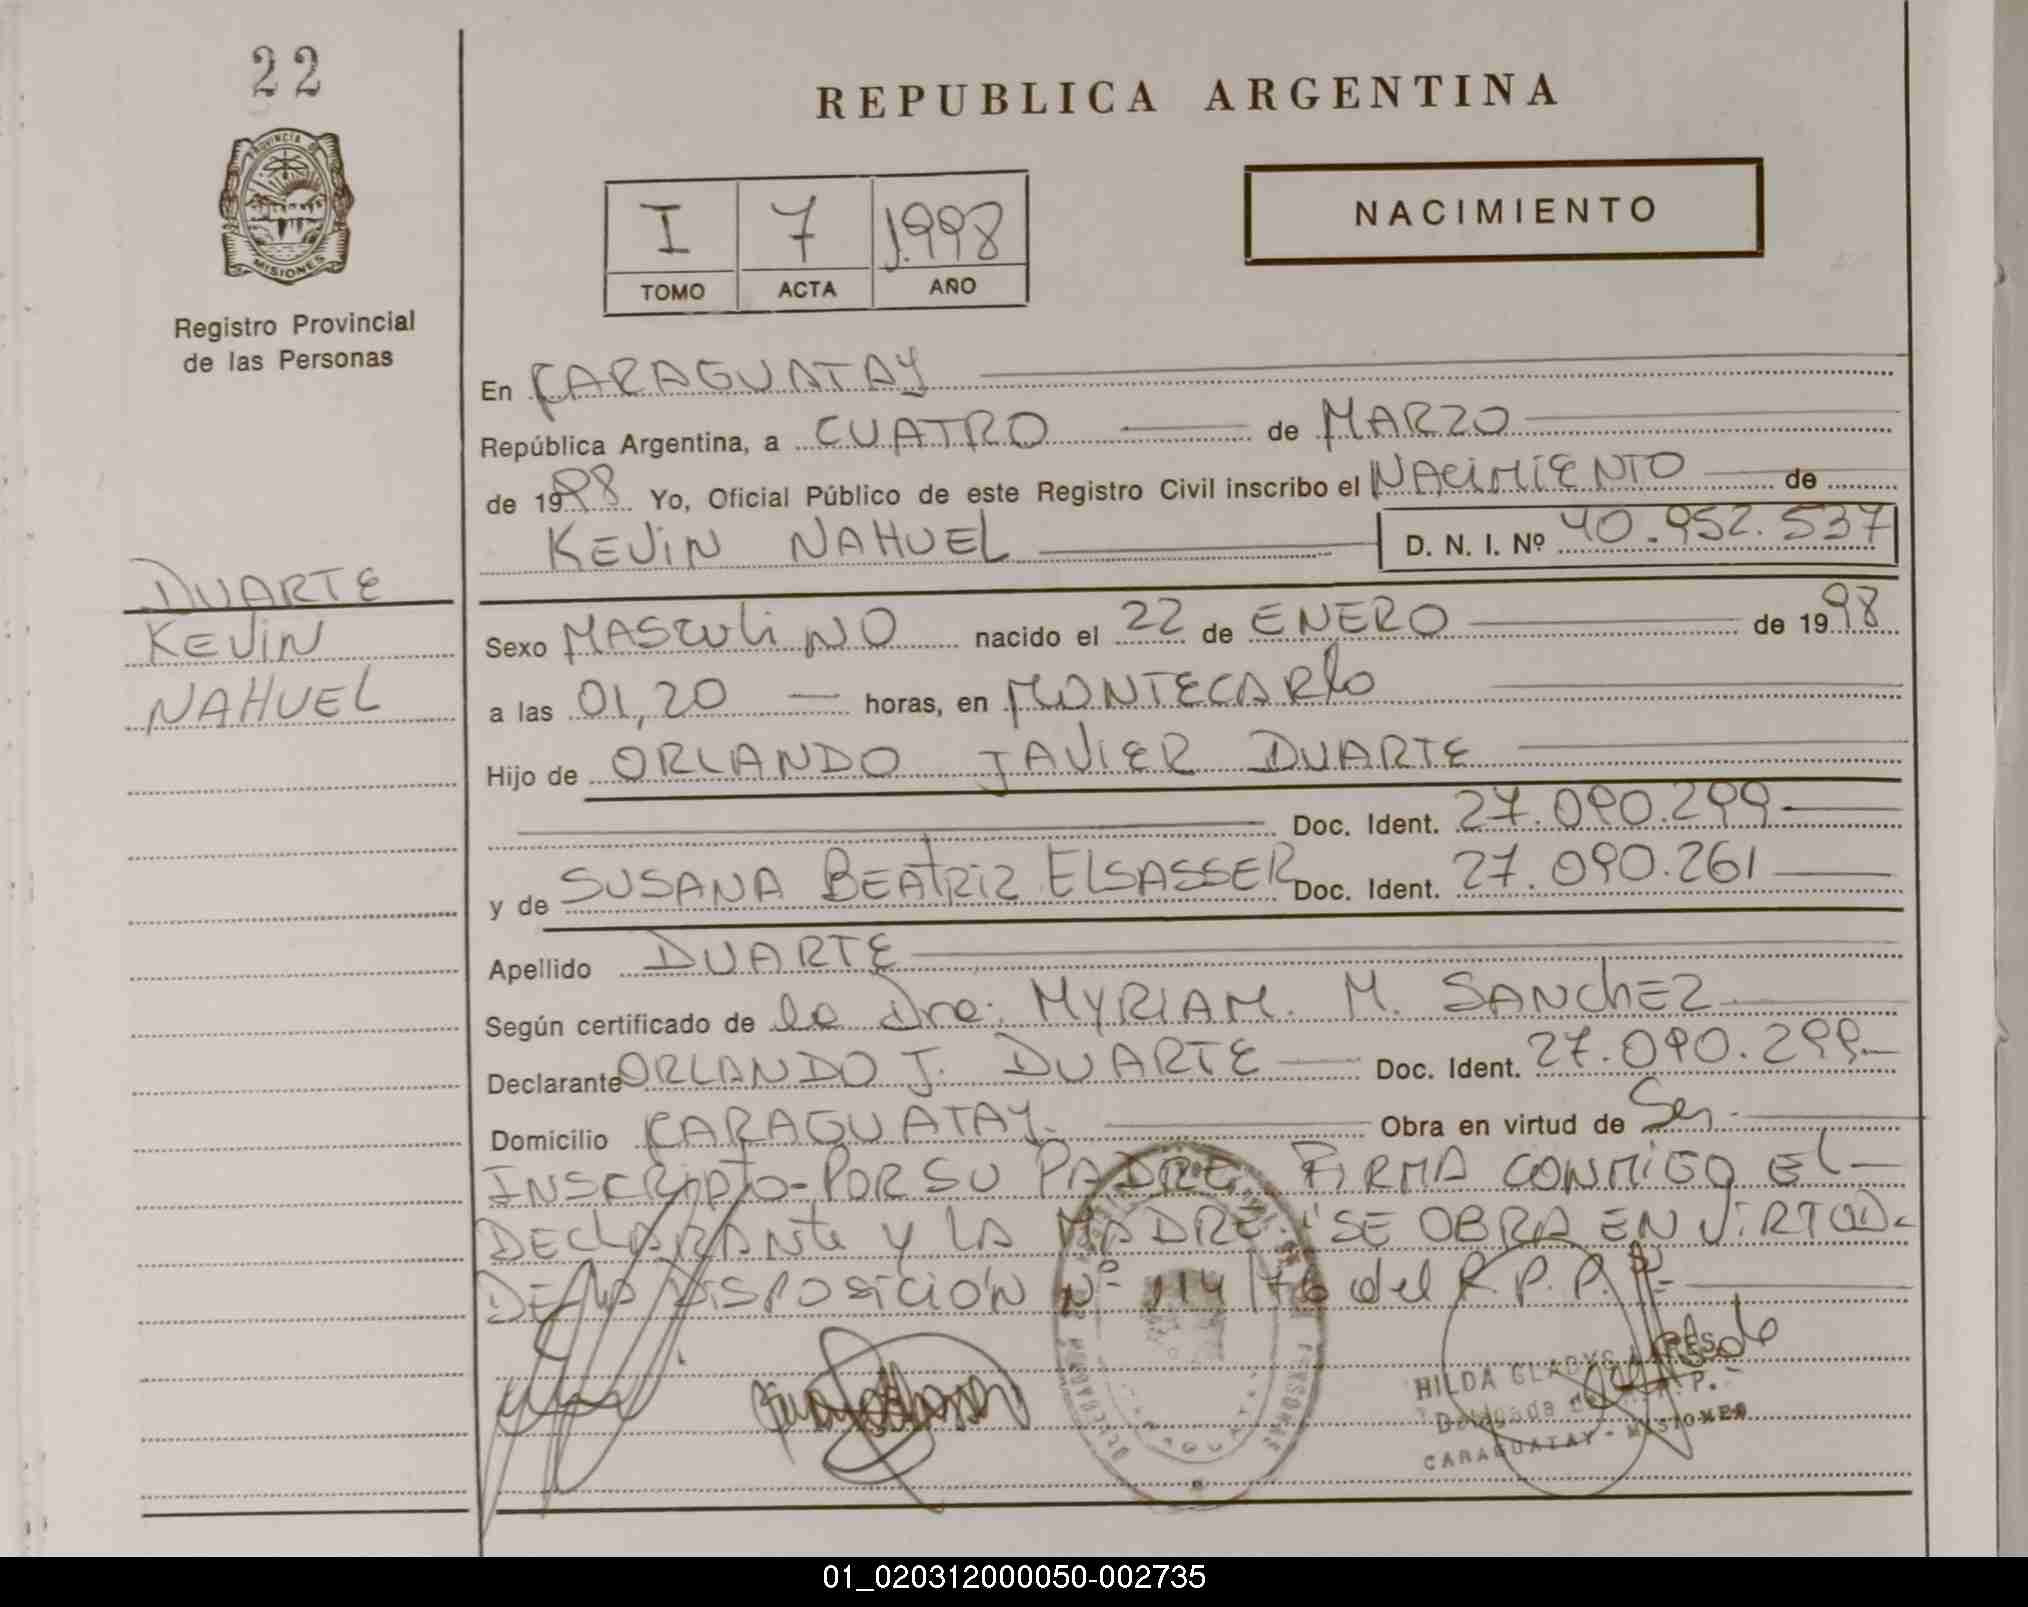 22
PROVINCIA DE
MISIONES
Registro Provincial
de las Personas
REPUBLICA ARGENTINA
I 7 1.998
TOMO ACTA AÑO
NACIMIENTO
En CARAGUATAY
República Argentina, a CUATRO de MARZO
de 1998 Yo, Oficial Público de este Registro Civil inscribo el NACIMIENTO de
KEVIN NAHUEL D. N. I. Nº 40.952.537
DUARTE
KEVIN
NAHUEL
Sexo MASCULINO nacido el 22 de ENERO de 1998
a las 01,20 horas, en MONTECARLO
Hijo de ORLANDO JAVIER DUARTE
Doc. Ident. 27.090.299
y de SUSANA BEATRIZ ELSASSER Doc. Ident. 27.090.261
Apellido DUARTE
Según certificado de la Dra. MYRIAM. M. SANCHEZ
Declarante ORLANDO J. DUARTE Doc. Ident. 27.090.299.-
Domicilio CARAGUATAY. Obra en virtud de Ser.
INSCRIPTO-POR SU PADRE. FIRMA CONMIGO EL-
DECLARANTE Y LA MADRE. SE OBRA EN VIRTUD-
DE LA DISPOSICIÓN Nº 114/76 del R.P.P.
HILDA GLADYS
Delegada
CARAGUATAY - MISIONES
01_020312000050-002735